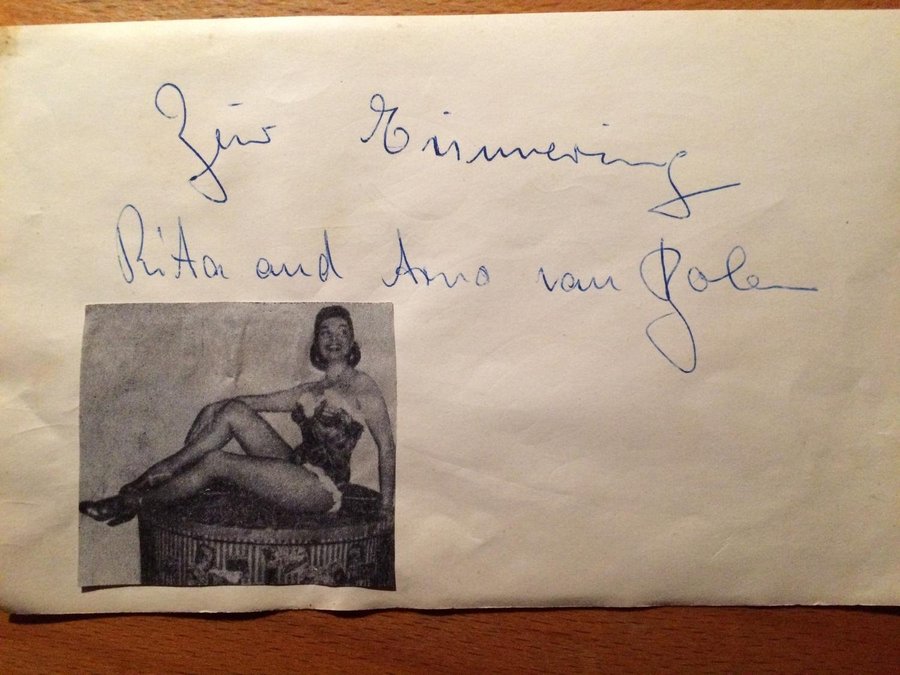 Zur Erinnerung
Rita and Arno van Bolen